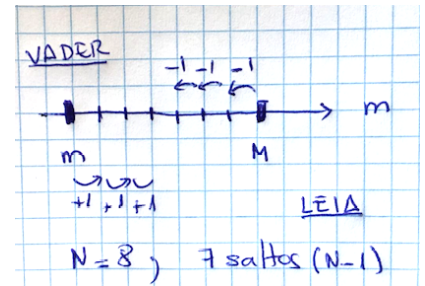 VADER
-1 -1 -1
m
m M
+1 +1 +1
LEIA
N = 8, 7 saltos (N-1)